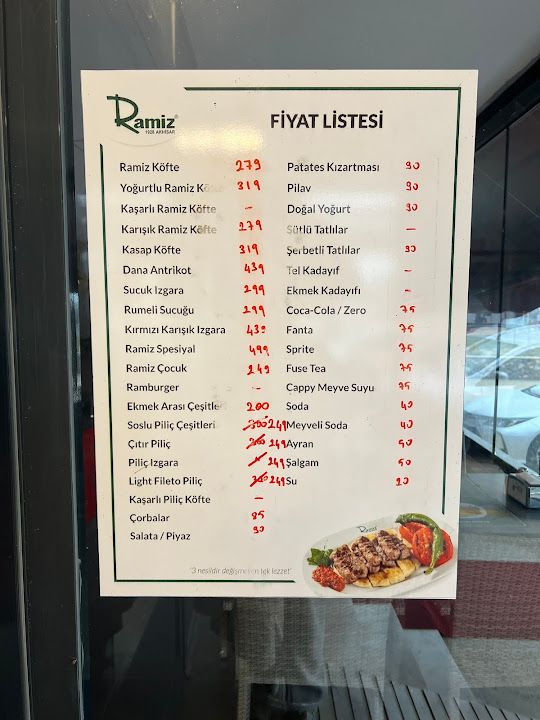 Ramiz®
1928 AKHİSAR
FİYAT LİSTESİ
Ramiz Köfte 279
Yoğurtlu Ramiz Köfte 319
Kaşarlı Ramiz Köfte -
Karışık Ramiz Köfte 279
Kasap Köfte 319
Dana Antrikot 439
Sucuk Izgara 299
Rumeli Sucuğu 299
Kırmızı Karışık Izgara 439
Ramiz Spesiyal 499
Ramiz Çocuk 249
Ramburger -
Ekmek Arası Çeşitleri 200
Soslu Piliç Çeşitleri 249
Çıtır Piliç 249
Piliç Izgara 249
Light Fileto Piliç 249
Kaşarlı Piliç Köfte -
Çorbalar 85
Salata / Piyaz 90
Patates Kızartması 90
Pilav 90
Doğal Yoğurt 90
Sütlü Tatlılar -
Şerbetli Tatlılar 90
Tel Kadayıf -
Ekmek Kadayıfı -
Coca-Cola / Zero 75
Fanta 75
Sprite 75
Fuse Tea 75
Cappy Meyve Suyu 75
Soda 40
Meyveli Soda 40
Ayran 50
Şalgam 50
Su 20
"3 nesildir değişmeyen tek lezzet"
Ramiz